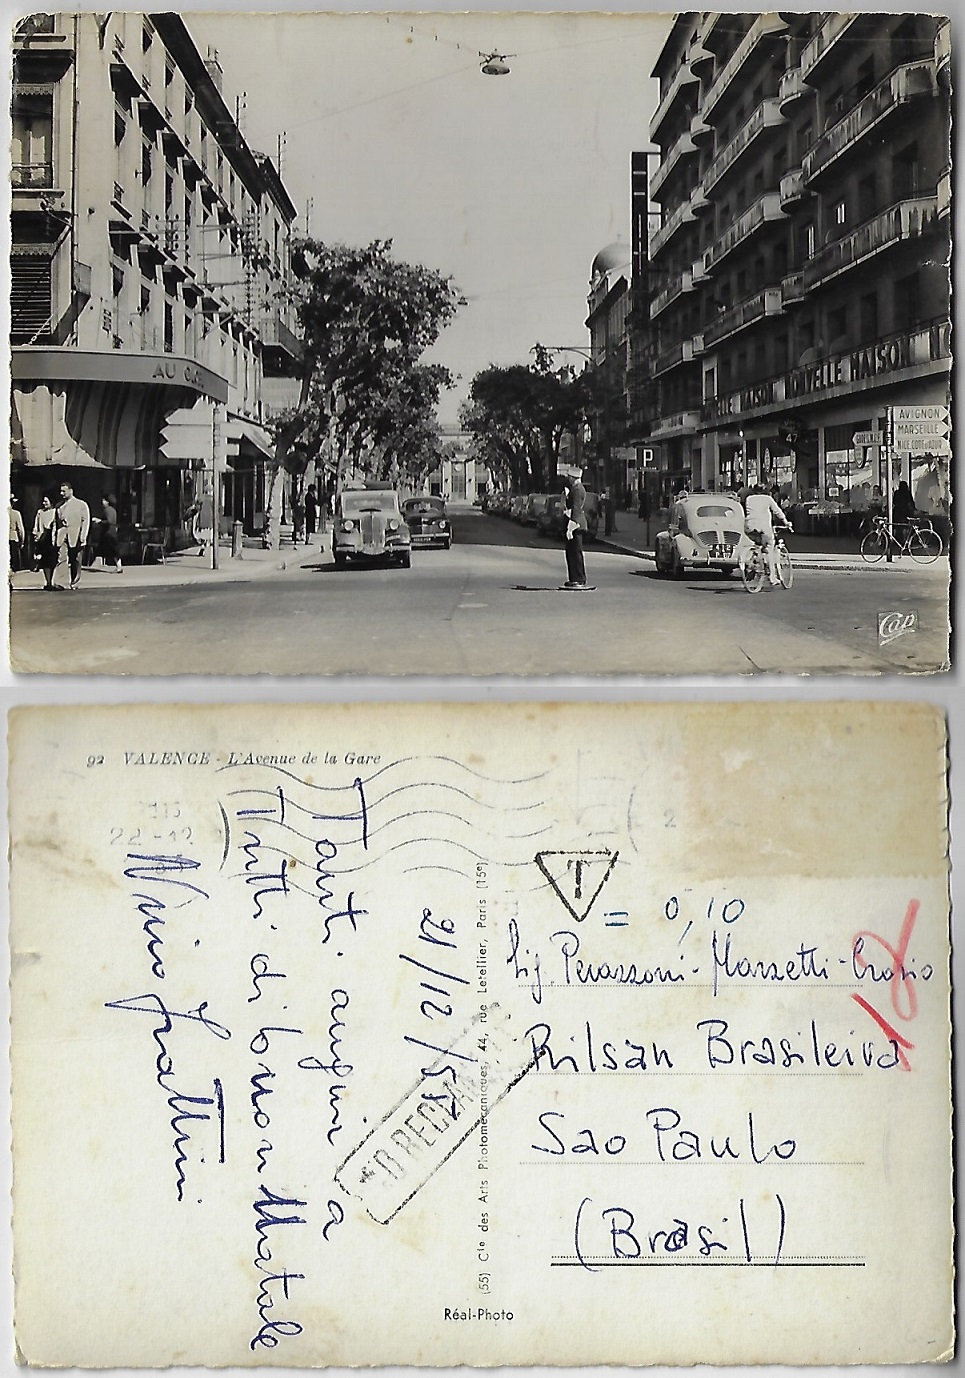 AU
NOUVELLE MAISON
P
47
AVIGNON
MARSEILLE
NICE COTE D'AZUR
Cap
92 VALENCE - L'Avenue de la Gare
22 -12
2
T
= 0,10
Tanti auguri a
Tutti di buon Natale
Nino Frattini
21/12/5
Sig. Perazzoni - Marzetti - Crosio
Rilsan Brasileira
Sao Paulo
(Brasil)
(55) Cie des Arts Photomécaniques, 44, rue Letellier, Paris (15e)
Réal-Photo